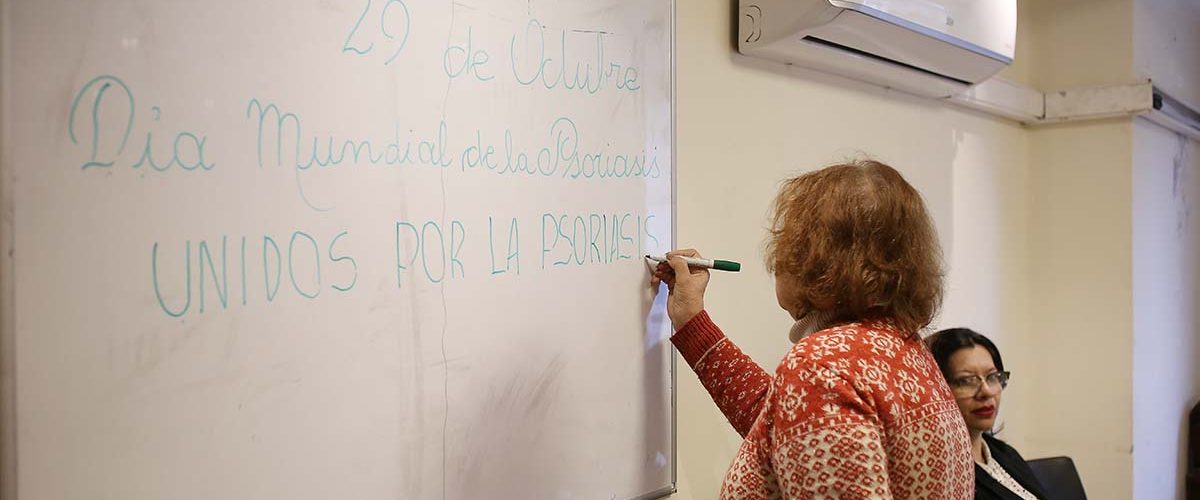 29 de Octubre
Dia Mundial de la Psoriasis
UNIDOS POR LA PSORIASIS